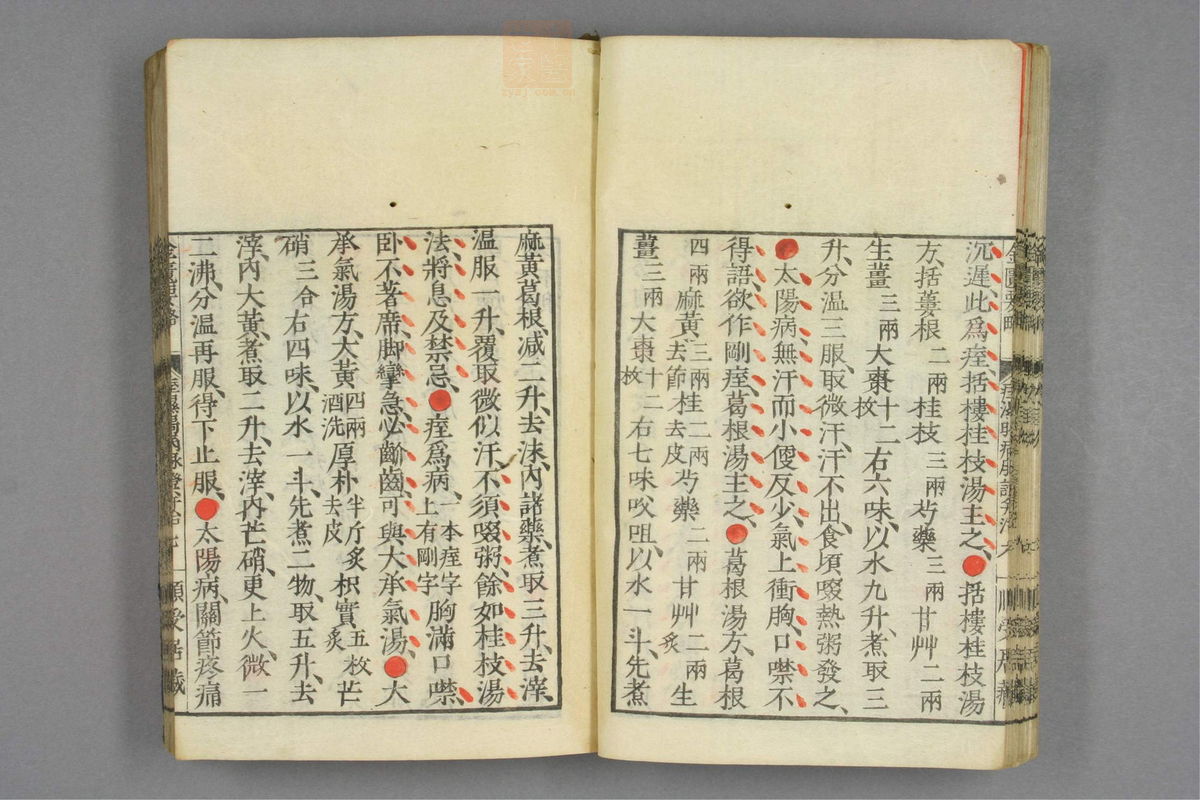 沉遲此爲痓括樓桂枝湯主之括樓桂枝湯
方括蔞根二兩桂枝三兩芍藥三兩甘艸二兩
生薑三兩大棗十二枚右六味以水九升煮取三
升分温三服取微汗汗不出食頃啜熱粥發之
太陽病無汗而小便反少氣上衝胸口噤不
得語欲作剛痓葛根湯主之葛根湯方葛根
四兩麻黃三兩去節桂二兩去皮芍藥二兩甘艸二兩炙生
薑三兩大棗十二枚右七味㕮咀以水一斗先煮
麻黃葛根减二升去沫內諸藥煮取三升去滓
温服一升覆取微似汗不須啜粥餘如桂枝湯
法將息及禁忌痓爲病一本痓字上有剛字胸滿口噤
卧不著席脚攣急必齘齒可與大承氣湯大
承氣湯方大黃四兩酒洗厚朴半斤炙去皮枳實五枚炙芒
硝三合右四味以水一斗先煮二物取五升去
滓內大黃煮取二升去滓內芒硝更上火微一
二沸分温再服得下止服太陽病關節疼痛
金匱要略
zysj.com.cn